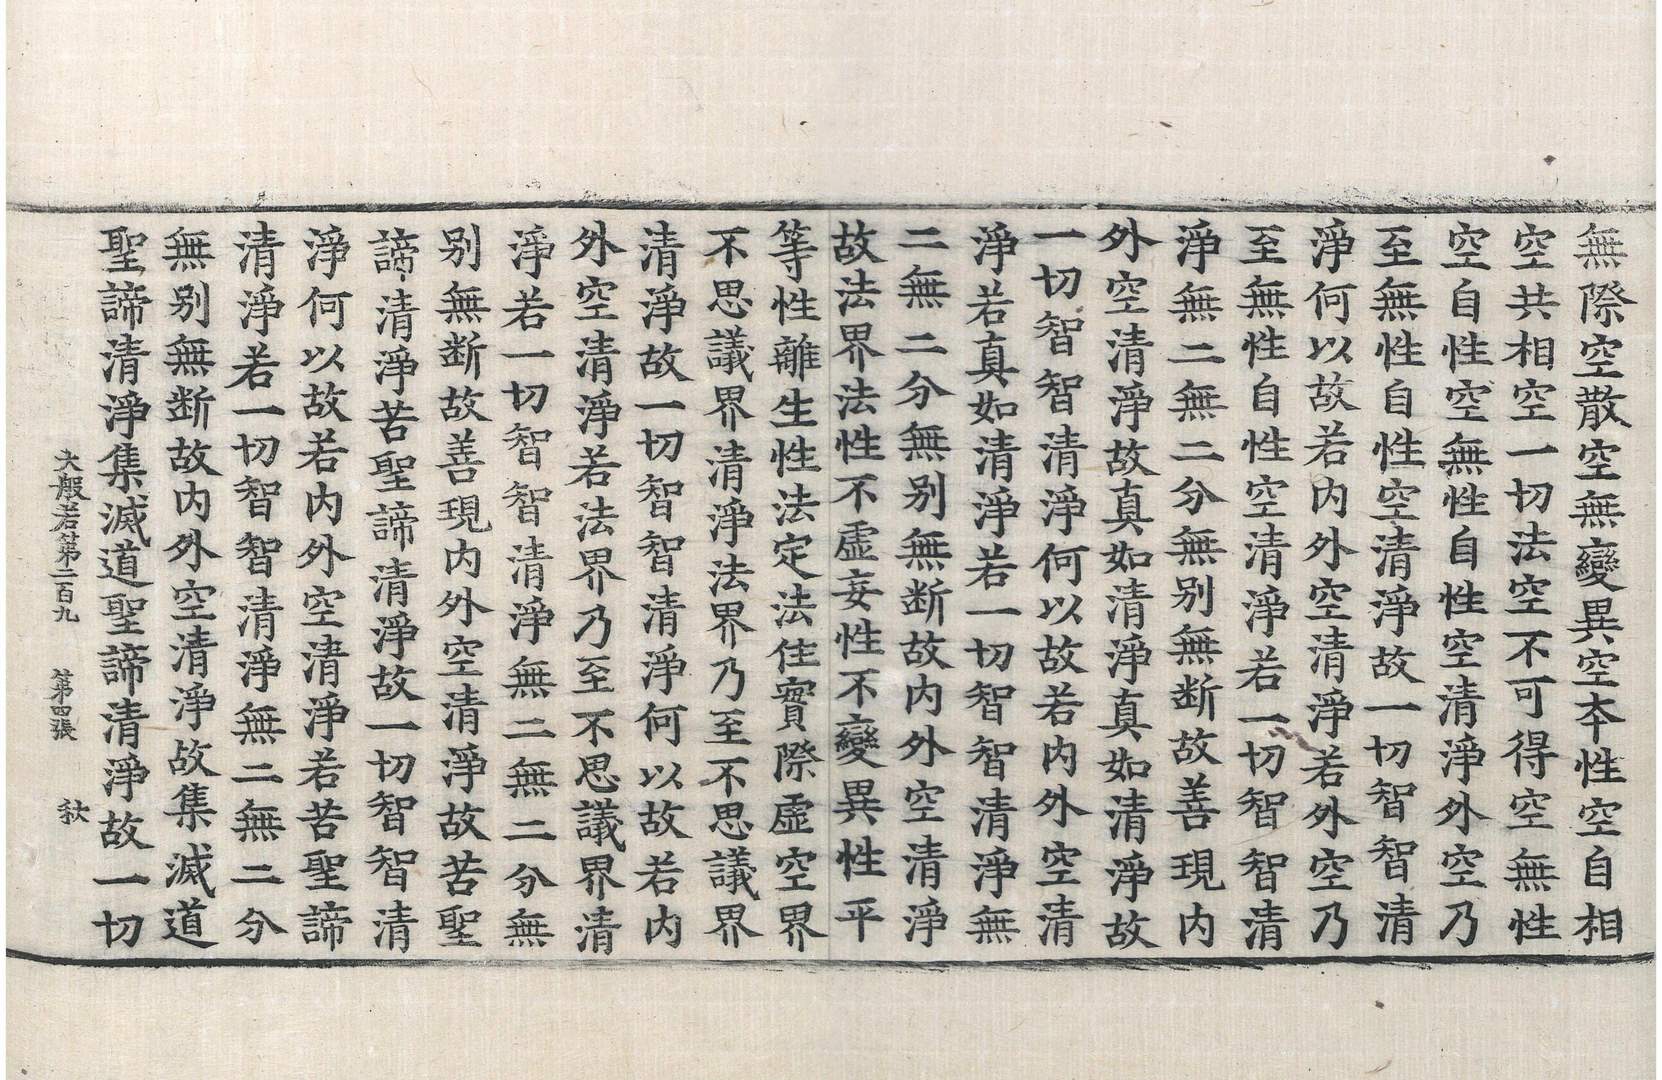 無際空散空無變異空夲性空自相
空共相空一切法空不可得空無性
空自性空無性自性空清淨外空乃
至無性自性空清淨故一切智智清
淨何以故若内外空清淨若外空乃
至無性自性空清淨若一切智智清
淨無二無二分無别無断故善現内
外空清淨故真如清淨真如清淨故
一切智智清淨何以故若内外空清
淨若真如清淨若一切智智清淨無
二無二分無别無断故内外空清淨
故法界法性不虛妄性不變異性平
等性離生性法定法住實際虛空界
不思議界清淨法界乃至不思議界
清淨故一切智智清淨何以故若内
外空清淨若法界乃至不思議界清
淨若一切智智清淨無二無二分無
别無断故善現内外空清淨故苦聖
諦清淨苦聖諦清淨故一切智智清
淨何以故若内外空清淨若苦聖諦
清淨若一切智智清淨無二無二分
無别無断故内外空清淨故集滅道
聖諦清淨集滅道聖諦清淨故一切
大般若第二百九 第四張 秋